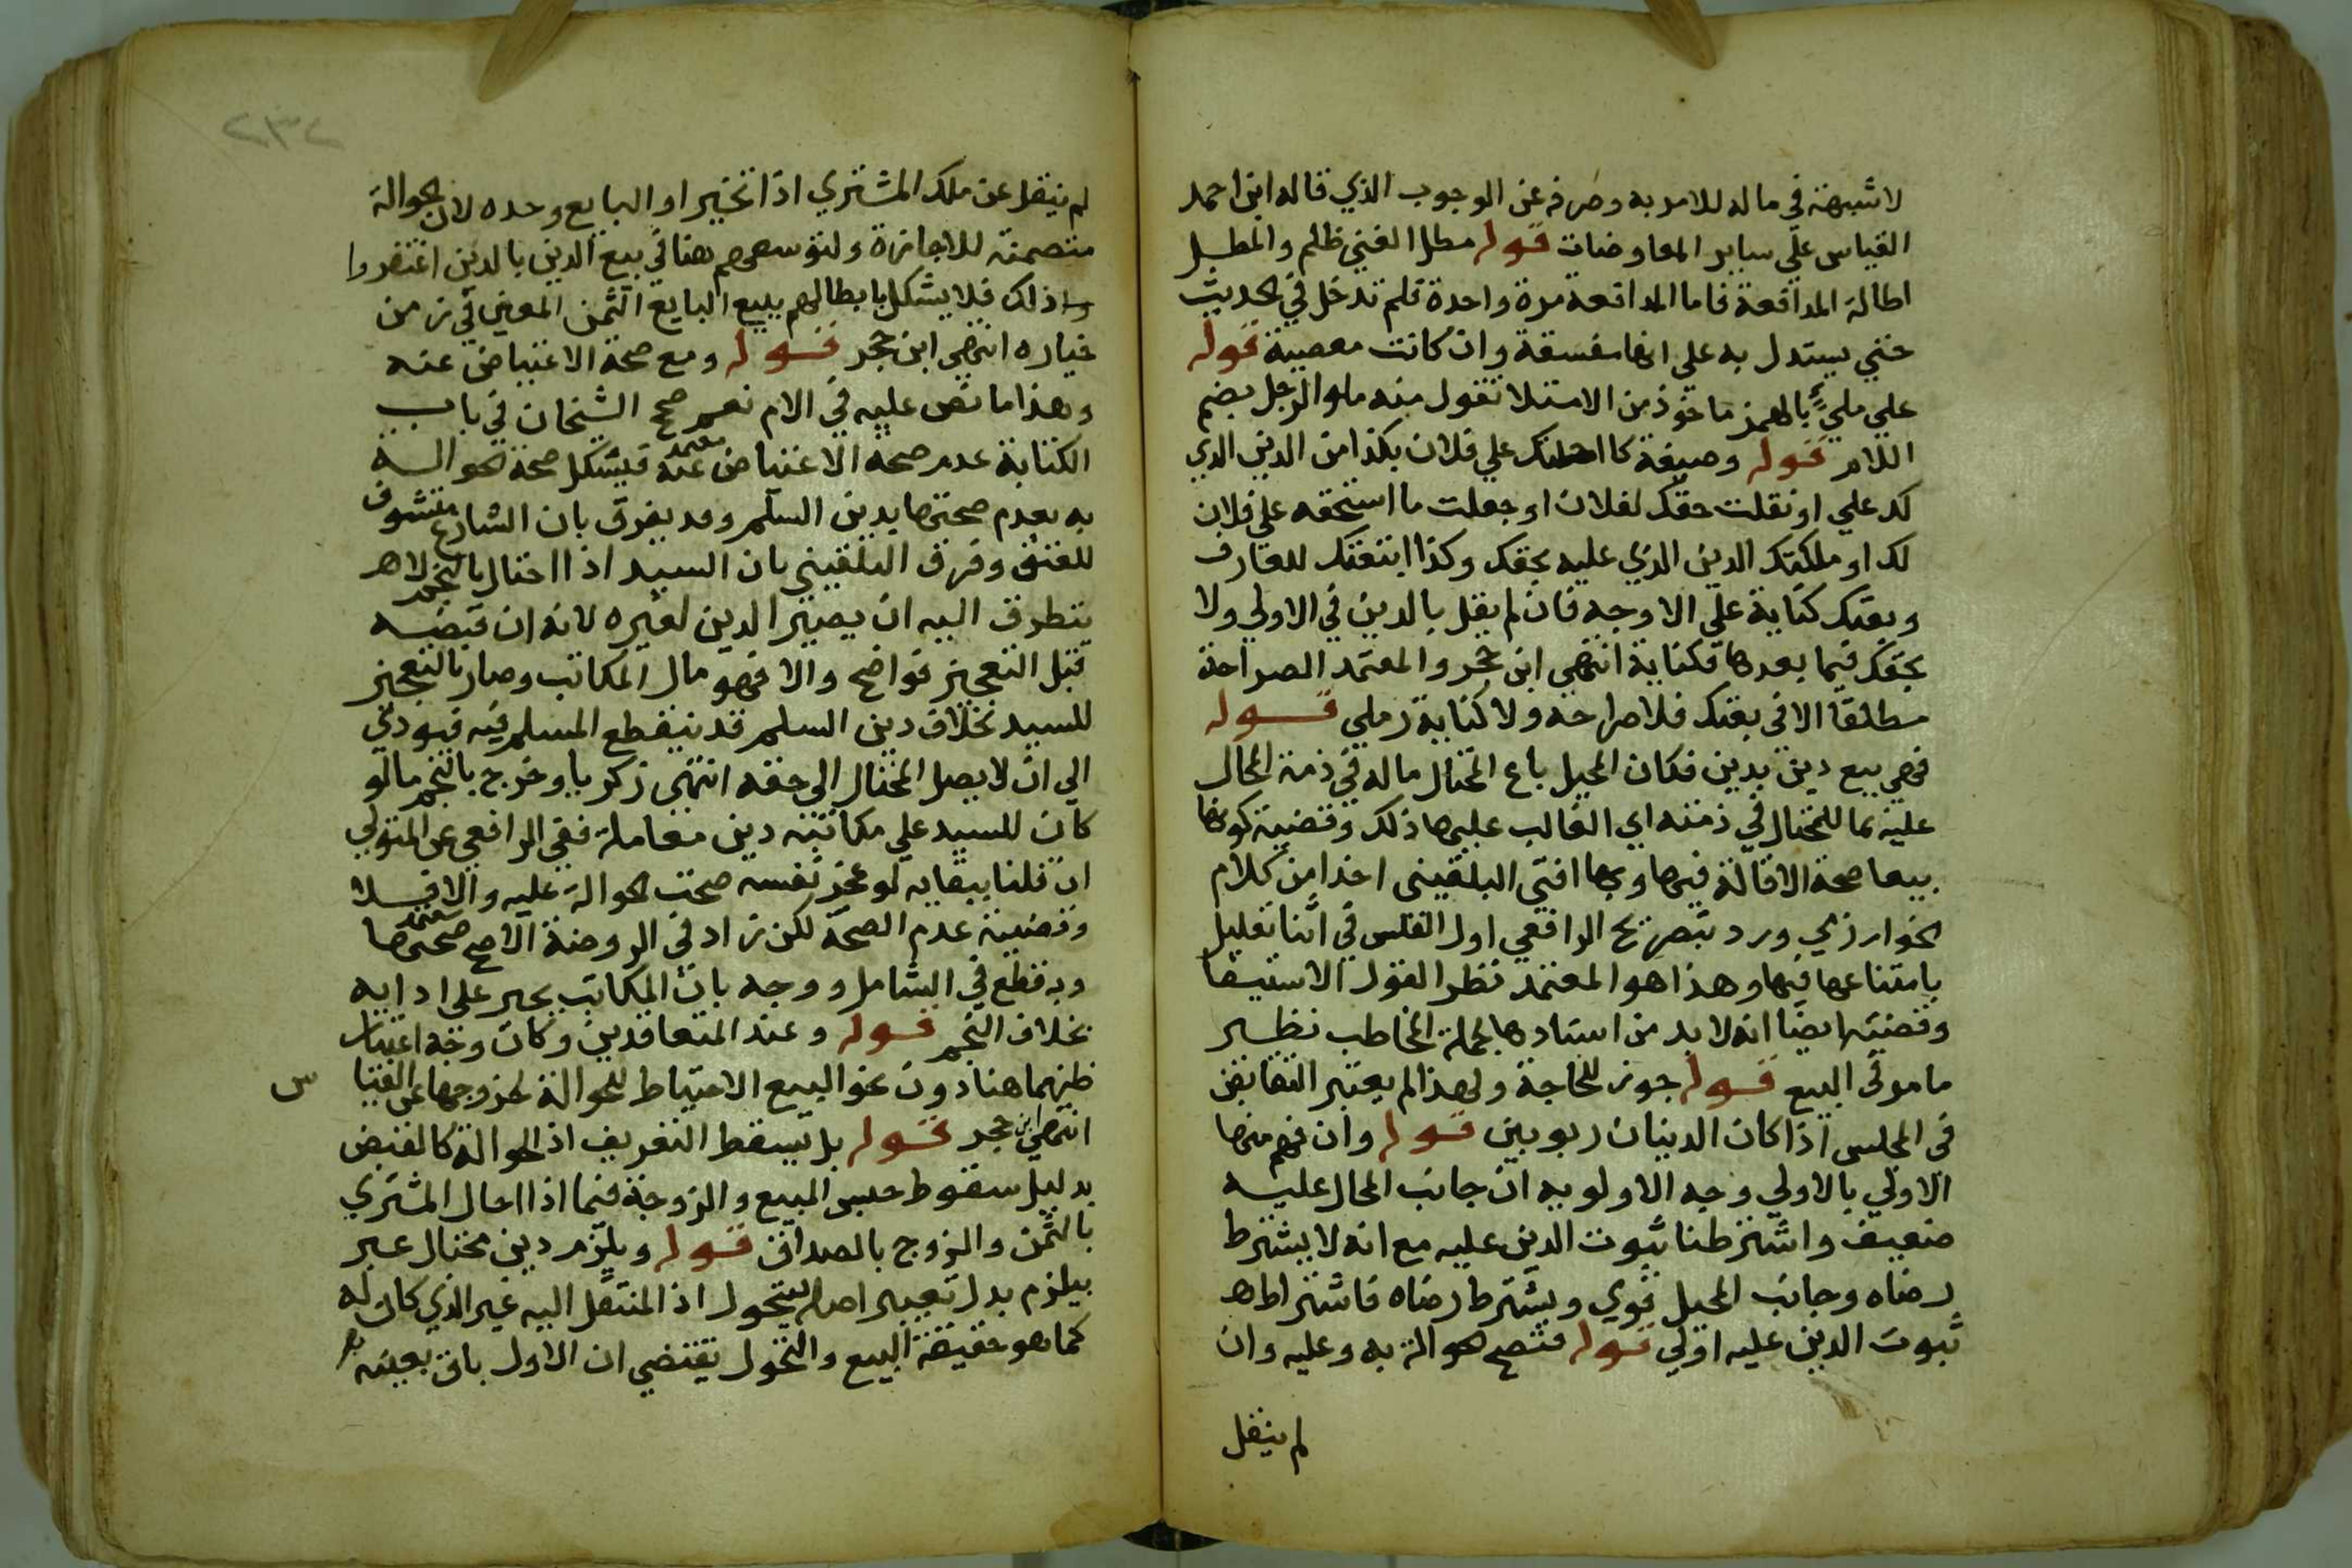 لا شبهة في ماله للامر به وصرفه عن الوجوب الذي قاله ابن احمد
القياس علي ساير المعاوضات قوله مطل الغني ظلم والمطل
اطالة المدافعة فاما المدافعة مرة واحدة فلم تدخل في الحديث
حتي يستدل به علي انها مفسقة وان كانت معصية قوله
علي مليء بالهمز ماخوذ من الامتلا تقول منه ملو الرجل بضم
اللام قوله وصيغة كاحلتك علي فلان بكذا من الدين الذي
لك علي او نقلت حقك لفلان او جعلت ما استحقه علي فلان
لك او ملكتك الدين الذي عليه بحقك وكذا ابتعتك للعارف
وبعتك كناية علي الاوجه فان لم يقل بالدين في الاولي ولا
بحقك فيما بعدها فكناية انتهي ابن حجر والمعتمد الصراحة
مطلقا الا في بعتك فلا صراحة ولا كناية رملي قوله
فهي بيع دين بدين فكان المحيل باع المحتال ماله في ذمة المحال
عليه بما للمحتال في ذمته اي الغالب عليها ذلك وقضية كونها
بيعا صحة الاقالة فيها وبها افتي البلقيني اخذا من كلام
الخوارزمي ورد بتصريح الرافعي اول الفلس في اثنا تعليل
بامتناعها فيها وهذا هو المعتمد نظرا لقول الاستيفا
وقضيته ايضا انه لا بد من اسنادها لجملة المخاطب نظير
ما مر في البيع قوله جوز للحاجة ولهذا لم يعتبر التقابض
في المجلس اذا كان الدينان ربويين قوله وان فهم منها
الاولي بالاولي وجه الاولويه ان جانب المحال عليه
ضعيف واشترطنا ثبوت الدين عليه مع انه لا يشترط
رضاه وجانب المحيل قوي ويشترط رضاه فاشتراط
ثبوت الدين عليه اولي قوله فتصح الحوالة به وعليه وان
لم ينقل
٢٣٢
لم ينقل عن ملك المشتري اذا تخير او البايع وحده لان الحوالة
متضمنة للاجازة ولتوسعهم هنا في بيع الدين بالدين اغتفروا
ذلك فلا يشكل بابطالهم بيع البايع الثمن المعين في زمن
خياره انتهي ابن حجر قوله ومع صحة الاعتياض عنه
وهذا ما نص عليه في الام نعم صحح الشيخان في باب
الكتابة عدم صحة الاعتياض عنه معتمد فيشكل صحة الحوالة
به بعدم صحتها بدين السلم وقد يفرق بان الشارع متشوف
للعتق وفرق البلقيني بان السيد اذا احتال بالنجم لا
يتطرق اليه ان يصير الدين لغيره لانه ان قبضه
قبل التعجيز فواضح والا فهو مال المكاتب وصار بالتعجيز
للسيد بخلاف دين السلم قد ينقطع المسلم فيه فيودي
الي ان لا يصل المحتال الي حقه انتهي زكريا وخرج بالنجم ما لو
كان للسيد علي مكاتبه دين معاملة ففي الرافعي عن المتولي
ان قلنا ببقايه لو عجز نفسه صحت الحوالة عليه والا فلا
وقضيته عدم الصحة لكن زاد في الروضة الاصح صحتها معتمد
وبه قطع في الشامل ووجه بان المكاتب يجبر علي ادايه
بخلاف النجم قوله وعند المتعاقدين وكان وجه اعتبار
ظنهما هنا دون نحو البيع الاحتياط للحوالة لخروجها عن القياس
انتهي ابن حجر قوله بل يسقط التعريف اذ الحوالة كالقبض
بدليل سقوط حبس المبيع والزوجة فيما اذا احال المشتري
بالثمن والزوج بالصداق قوله ويلزم دين محتال عبر
بيلزم بدل تعبير اصله بيتحول اذ المنتقل اليه غير الذي كان له
كما هو حقيقة البيع والتحول يقتضي ان الاول باق بعينه